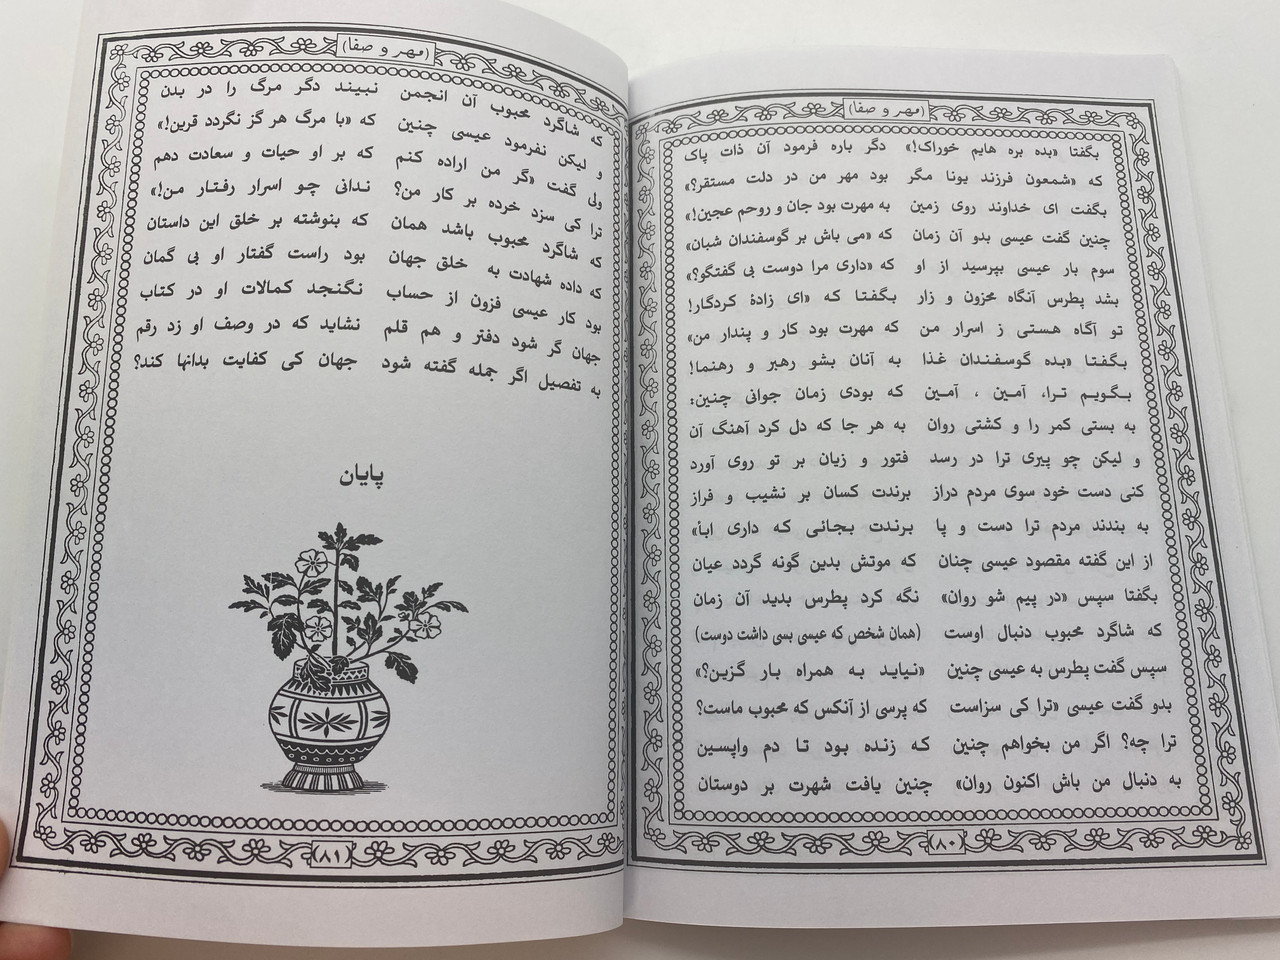 (مهر و صفا)
بگفتا «بده بره هایم خوراک!» دگر باره فرمود آن ذات پاک
که «شمعون فرزند یونا مگر بود مهر من در دلت مستقر؟»
بگفت ای خداوند روی زمین به مهرت بود جان و روحم عجین!»
چنین گفت عیسی بدو آن زمان که «می باش بر گوسفندان شبان»
سوم بار عیسی بپرسید از او که «داری مرا دوست بی گفتگو؟»
بشد پطرس آنگاه محزون و زار بگفتا که «ای زادهٔ کردگار!
تو آگاه هستی ز اسرار من که مهرت بود کار و پندار من»
بگفتا «بده گوسفندان غذا به آنان بشو رهبر و رهنما!
بگویم ترا، آمین ، آمین که بودی زمان جوانی چنین:
به بستی کمر را و کشتی روان به هر جا که دل کرد آهنگ آن
و لیکن چو پیری ترا در رسد فتور و زیان بر تو روی آورد
کنی دست خود سوی مردم دراز برندت کسان بر نشیب و فراز
به بندند مردم ترا دست و پا برندت بجائی که داری ابأ»
از این گفته مقصود عیسی چنان که موتش بدین گونه گردد عیان
بگفتا سپس «در پیم شو روان» نگه کرد پطرس بدید آن زمان
که شاگرد محبوب دنبال اوست (همان شخص که عیسی بسی داشت دوست)
سپس گفت پطرس به عیسی چنین «نیاید به همراه بار گزین؟»
بدو گفت عیسی «ترا کی سزاست که پرسی از آنکس که محبوب ماست؟
ترا چه؟ اگر من بخواهم چنین که زنده بود تا دم واپسین
به دنبال من باش اکنون روان» چنین یافت شهرت بر دوستان
(۸۰)
(مهر و صفا)
که شاگرد محبوب آن انجمن نبیند دگر مرگ را در بدن
و لیکن نفرمود عیسی چنین که «با مرگ هر گز نگردد قرین!»
ولی گفت «گر من اراده کنم که بر او حیات و سعادت دهم
ترا کی سزد خرده بر کار من؟ ندانی چو اسرار رفتار من!»
که شاگرد محبوب باشد همان که بنوشته بر خلق این داستان
که داده شهادت به خلق جهان بود راست گفتار او بی گمان
بود کار عیسی فزون از حساب نگنجد کمالات او در کتاب
جهان گر شود دفتر و هم قلم نشاید که در وصف او زد رقم
به تفصیل اگر جمله گفته شود جهان کی کفایت بدانها کند؟
پایان
(۸۱)